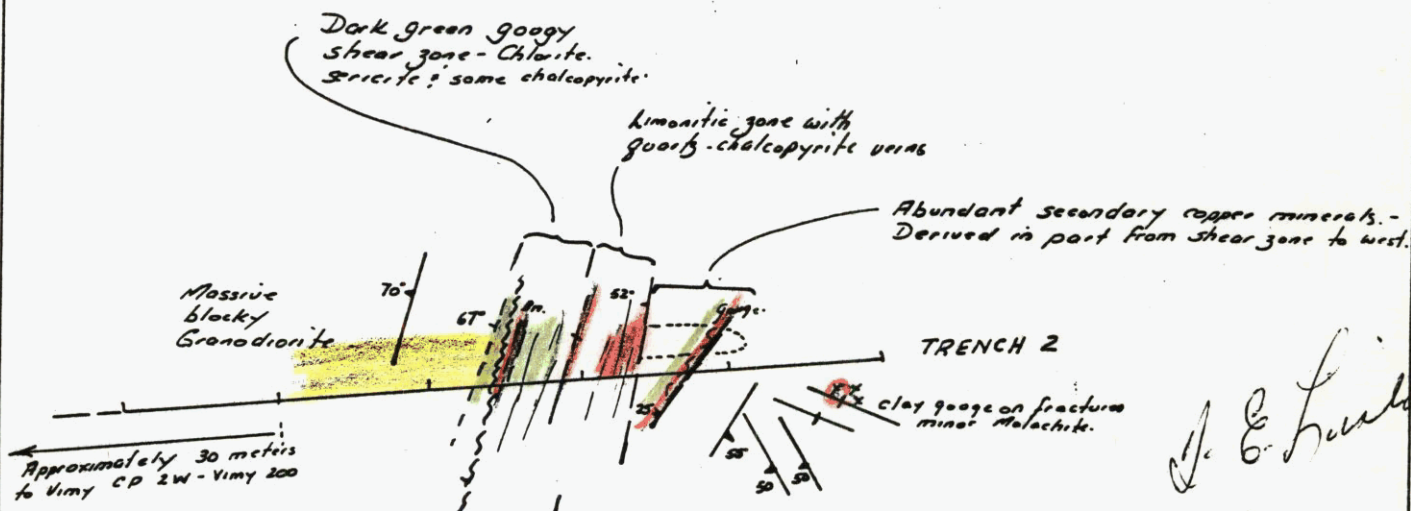 Dark green googy
shear zone - Chlorite.
sericite & some chalcopyrite.
Limonitic zone with
quartz-chalcopyrite veins
Abundant secondary copper minerals. -
Derived in part from shear zone to west.
Massive
blocky
Granodiorite
70°
67°
52°
gouge.
TRENCH 2
25
clay gouge on fractures
minor Malachite.
55
50
50
Approximately 30 meters
to Vimy CP 2W - Vimy 200